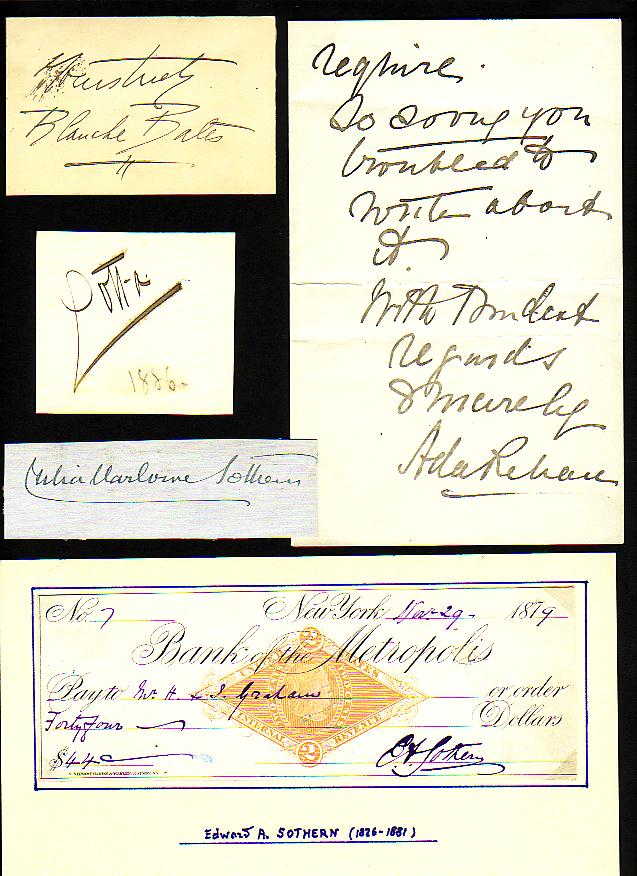 Blanche Bates
Lotta
1886-
Julia Marlowe Sothern
require.
So sorry you
troubled to
write about
it
With
regards
Sincerely
Ada Rehan
No. 7 New York Nov. 29 1879
Bank of the Metropolis
Pay to Mr. H. & J. Graham or order
Forty four Dollars
$44
E A Sothern
2
INTERNAL REVENUE
2
Edward A. SOTHERN (1826-1881)